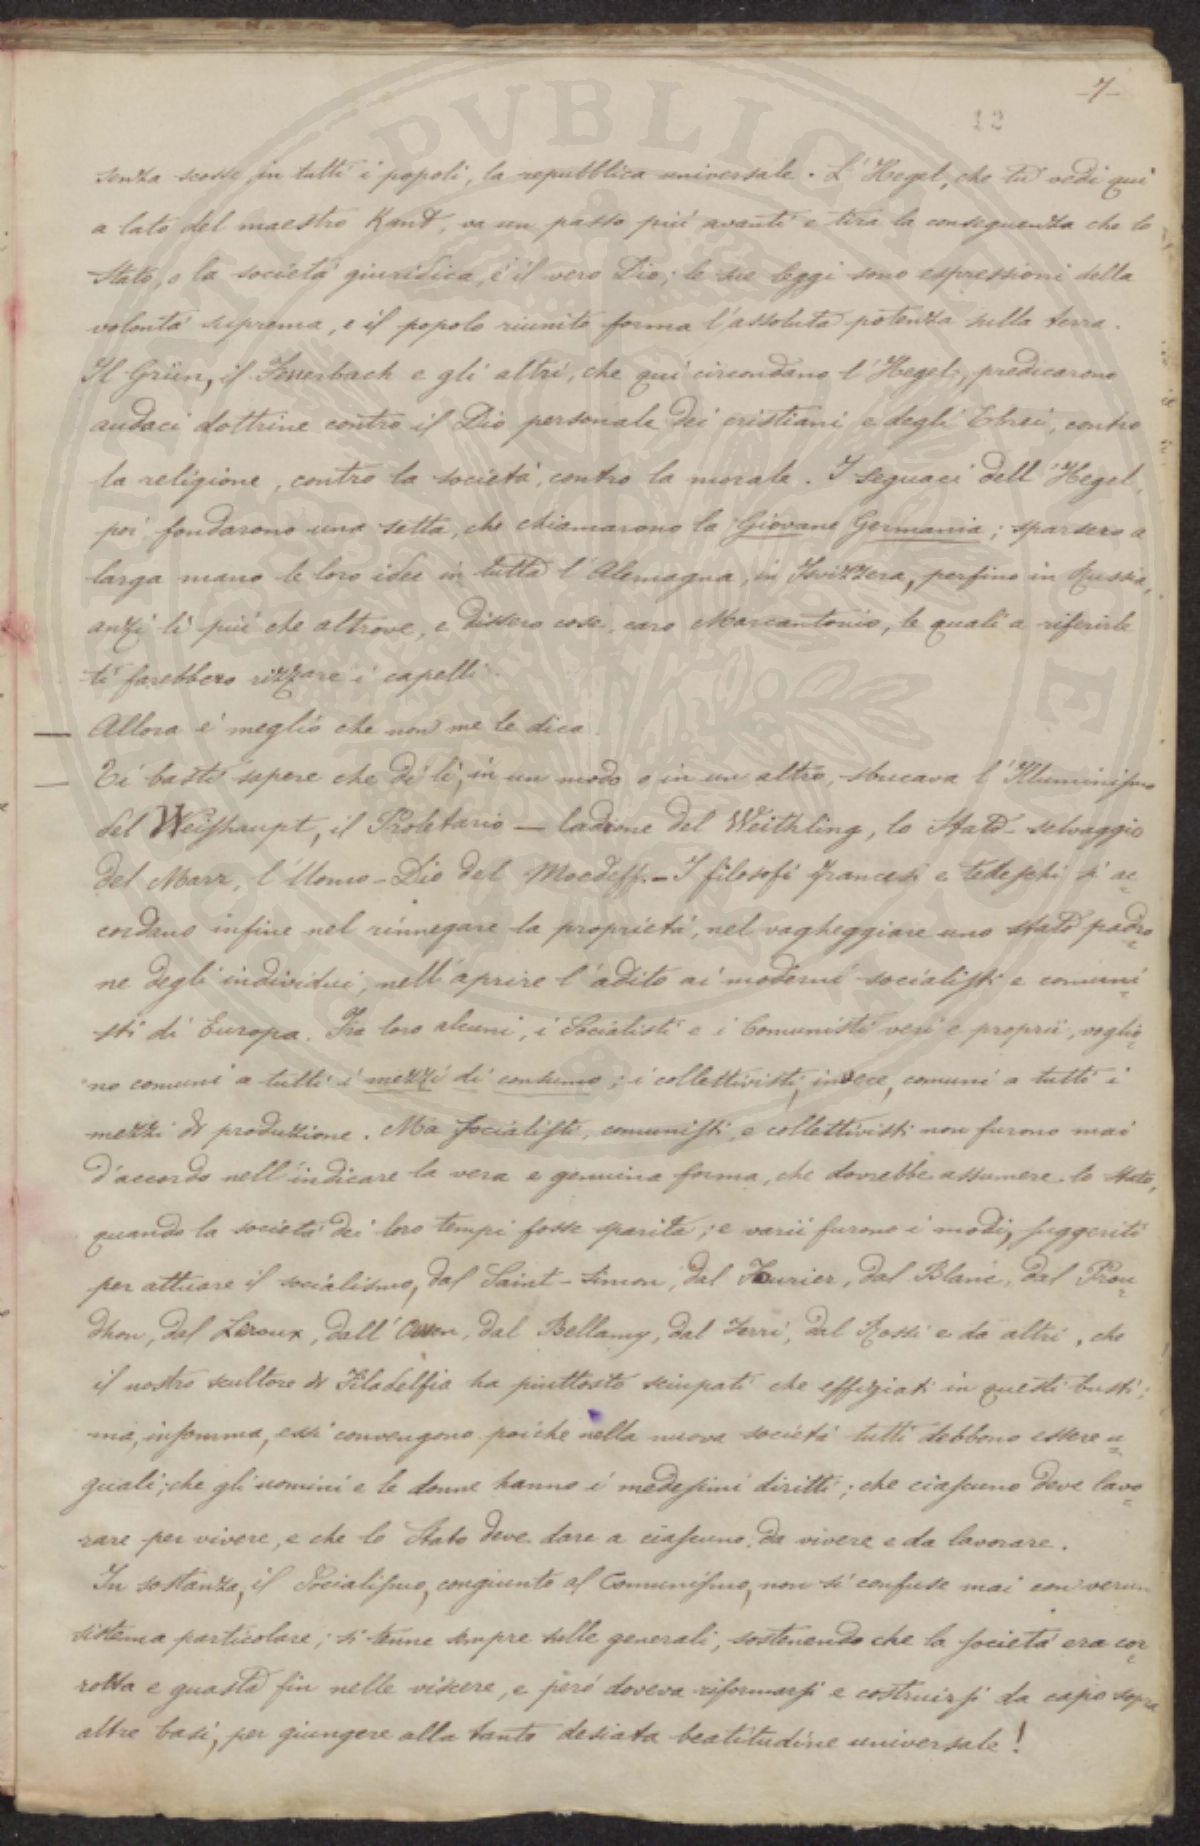 -7-
12
senza scosse, in tutti i popoli, la repubblica universale. L'Hegel, che tu vedi qui
a lato del maestro Kant, va un passo più avanti e tira la conseguenza che lo
Stato, o la società giuridica, è il vero Dio; le sue leggi sono espressioni della
volontà suprema, e il popolo riunito forma l'assoluta potenza sulla terra.
Il Grün, il Feuerbach e gli altri, che qui circondano l'Hegel, predicarono
audaci dottrine contro il Dio personale dei cristiani e degli Ebrei, contro
la religione, contro la società, contro la morale. I seguaci dell'Hegel,
poi fondarono una setta, che chiamarono la Giovane Germania; sparsero a
larga mano le loro idee in tutta l'Alemagna, in Isvizzera, perfino in Russia,
anzi lì più che altrove, e dissero cose, caro Marcantonio, le quali a riferirle
ti farebbero rizzare i capelli.
— Allora è meglio che non me le dica.
— Ti basti sapere che di lì, in un modo o in un altro, sbucava l'Illuminismo
del Weishaupt, il Proletario — ladrone del Weithling, lo Stato-selvaggio
del Marr, l'Uomo-Dio del - I filosofi francesi e tedeschi si ac=
cordano infine nel rinnegare la proprietà, nel vagheggiare uno stato padro=
ne degli individui, nell'aprire l'adito ai moderni socialisti e comuni=
sti di Europa. Fra loro alcuni, i Socialisti e i Comunisti veri e proprii, voglio=
no comuni a tutti i mezzi di consumo; i collettivisti, invece, comuni a tutti i
mezzi di produzione. Ma socialisti, comunisti, e collettivisti non furono mai
d'accordo nell'indicare la vera e genuina forma, che dovrebbe assumere lo Stato,
quando la società dei loro tempi fosse sparita; e varii furono i modi, suggeriti
per attuare il socialismo, dal Saint-Simon, dal Fourier, dal Blanc, dal Prou=
dhon, dal Leroux, dall'Owen, dal Bellamy, dal Ferri, dal Rossi e da altri, che
il nostro scultore di Filadelfia ha piuttosto sciupati che effigiati in questi busti;
ma, insomma, essi convengono poichè nella nuova società tutti debbono essere u=
guali; che gli uomini e le donne hanno i medesimi diritti; che ciascuno deve lavo=
rare per vivere, e che lo Stato deve dare a ciascuno da vivere e da lavorare.
In sostanza, il Socialismo, congiunto al Comunismo, non si confuse mai con verun
sistema particolare; si tenne sempre sulle generali, sostenendo che la società era cor=
rotta e guasta fin nelle viscere, e però doveva riformarsi e costruirsi da capo sopra
altre basi, per giungere alla tanto desiata beatitudine universale!